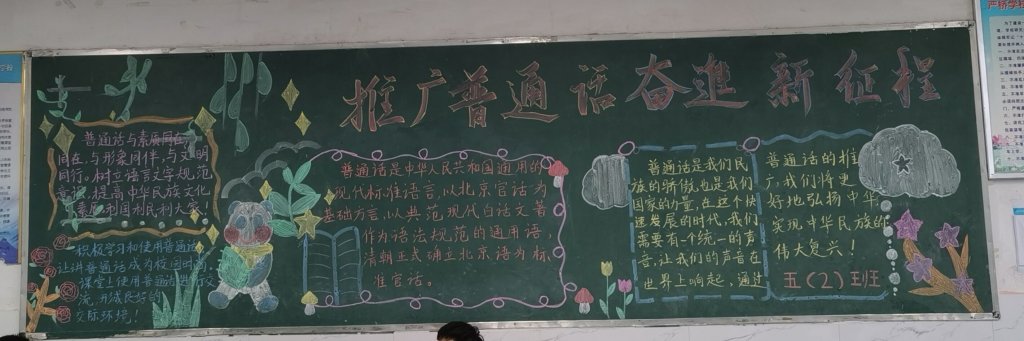 推广普通话 奋進新征程
普通话与素质同在
同在,与形象同伴,与文明
同行。树立语言文字规范
意识,提高中华民族文化
素质利国利民利大家!
积极学习和使用普通话
让讲普通话成为校园时尚
课堂上使用普通话进行交
流,形成良好的
交际环境!
普通话是中华人民共和国通用的
现代标准语言,以北京官话为
基础方言,以典范现代白话文著
作为语法规范的通用语,
清朝正式确立北京语为标
准官话。
普通话是我们民
族的骄傲,也是我们
国家的力量,在这个快
速发展的时代,我们
需要有一个统一的声
音,让我们的声音在
世界上响起,通过
普通话的推
广,我们将更
好地弘扬中华
实现中华民族的
伟大复兴!
五(2)班